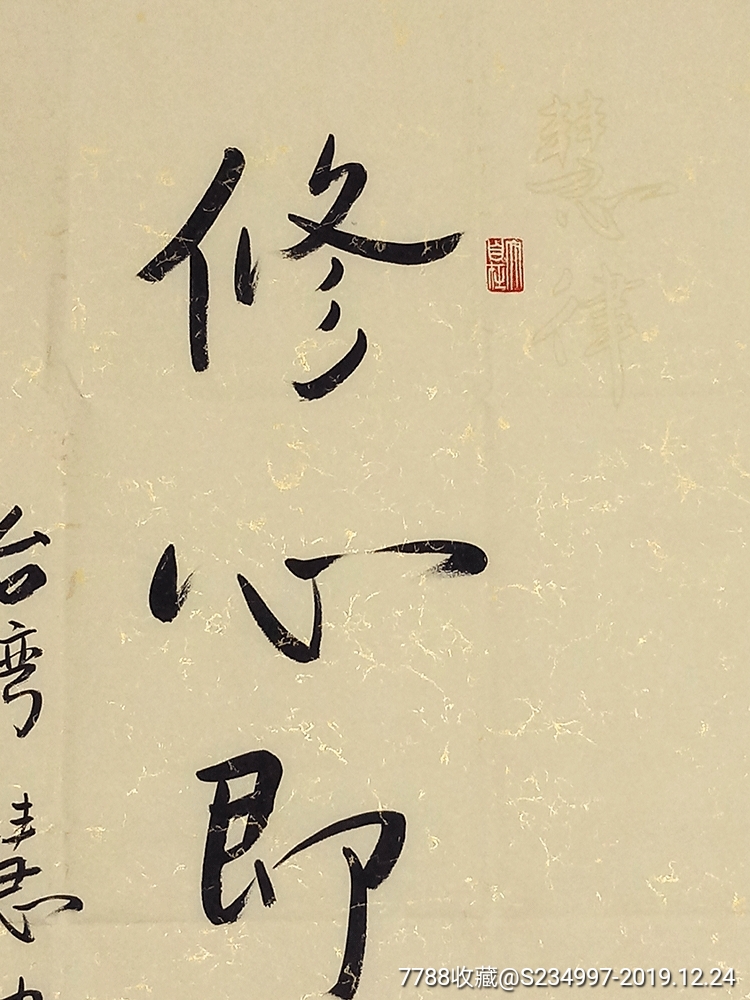 慧律
修心即
台湾慧
7788收藏@S234997-2019.12.24